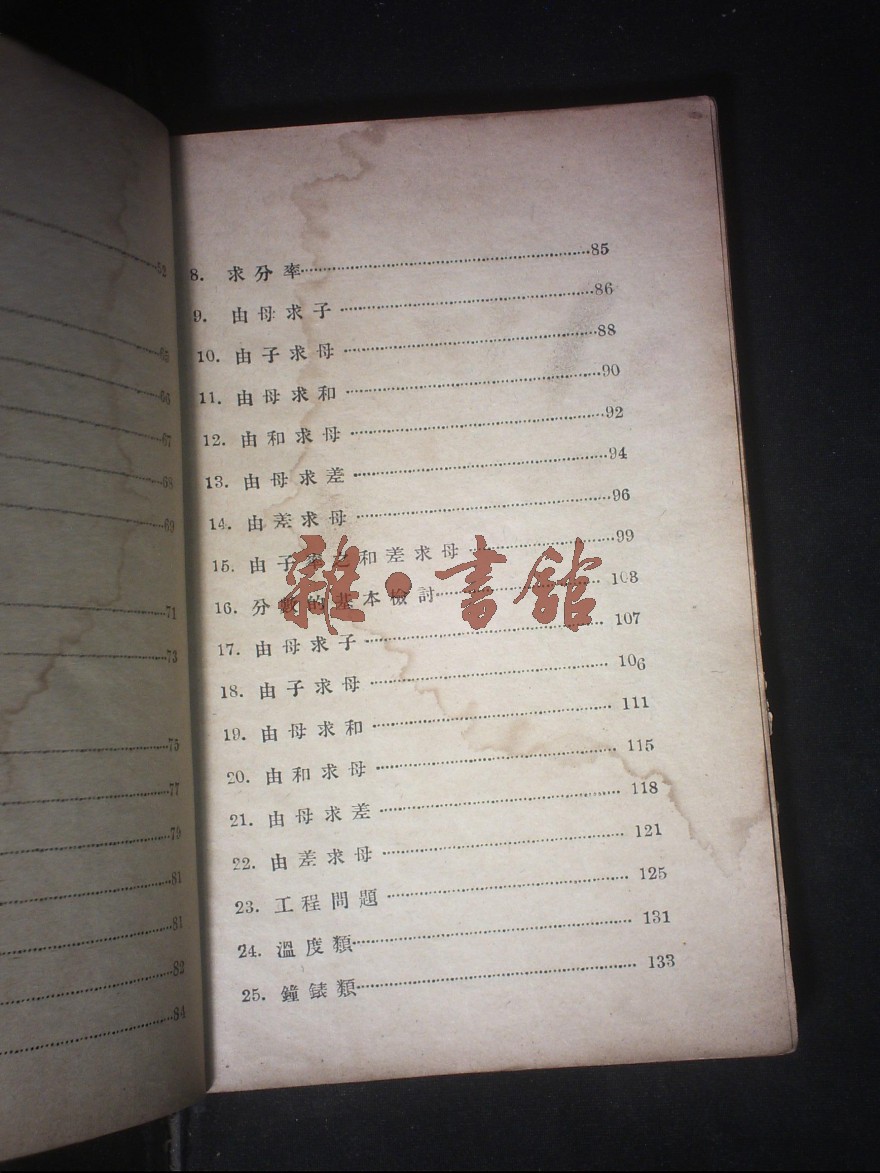 52
65
66
67
68
69
71
73
75
77
79
81
81
82
84
8. 求分率 85
9. 由母求子 86
10. 由子求母 88
11. 由母求和 90
12. 由和求母 92
13. 由母求差 94
14. 由差求母 96
15. 由子率之和差求母 99
16. 分數的基本檢討 103
17. 由母求子 107
18. 由子求母 106
19. 由母求和 111
20. 由和求母 115
21. 由母求差 118
22. 由差求母 121
23. 工程問題 125
24. 溫度類 131
25. 鐘錶類 133
雜·書館